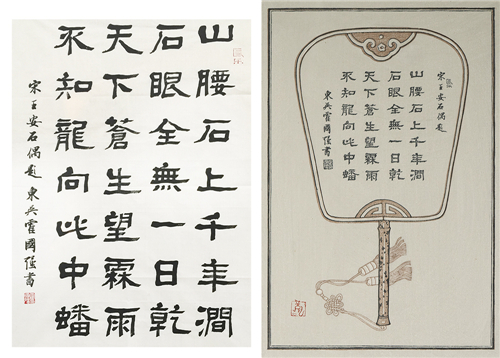 山腰石上千年澗
石眼全無一日乾
天下蒼生望霖雨
不知龍向此中蟠
宋王安石偶題 東吳霍國强書
宋王安石偶題
山腰石上千年澗
石眼全無一日乾
天下蒼生望霖雨
不知龍向此中蟠
東吳霍國强書